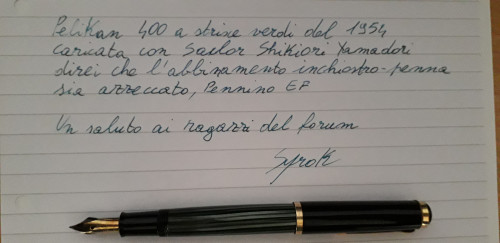 Pelikan 400 a strisce verdi del 1954
caricata con Sailor Shikiori Yamadori
direi che l'abbinamento inchiostro-penna
sia azzeccato, Pennino EF
Un saluto ai ragazzi del forum
Syrok